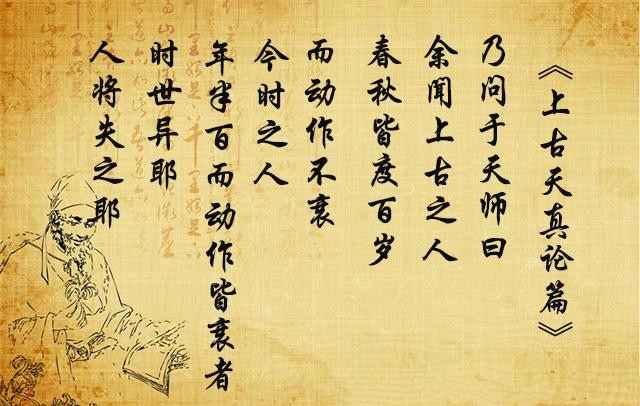 《上古天真论篇》
乃问于天师曰
余闻上古之人
春秋皆度百岁
而动作不衰
今时之人
年半百而动作皆衰者
时世异耶
人将失之耶